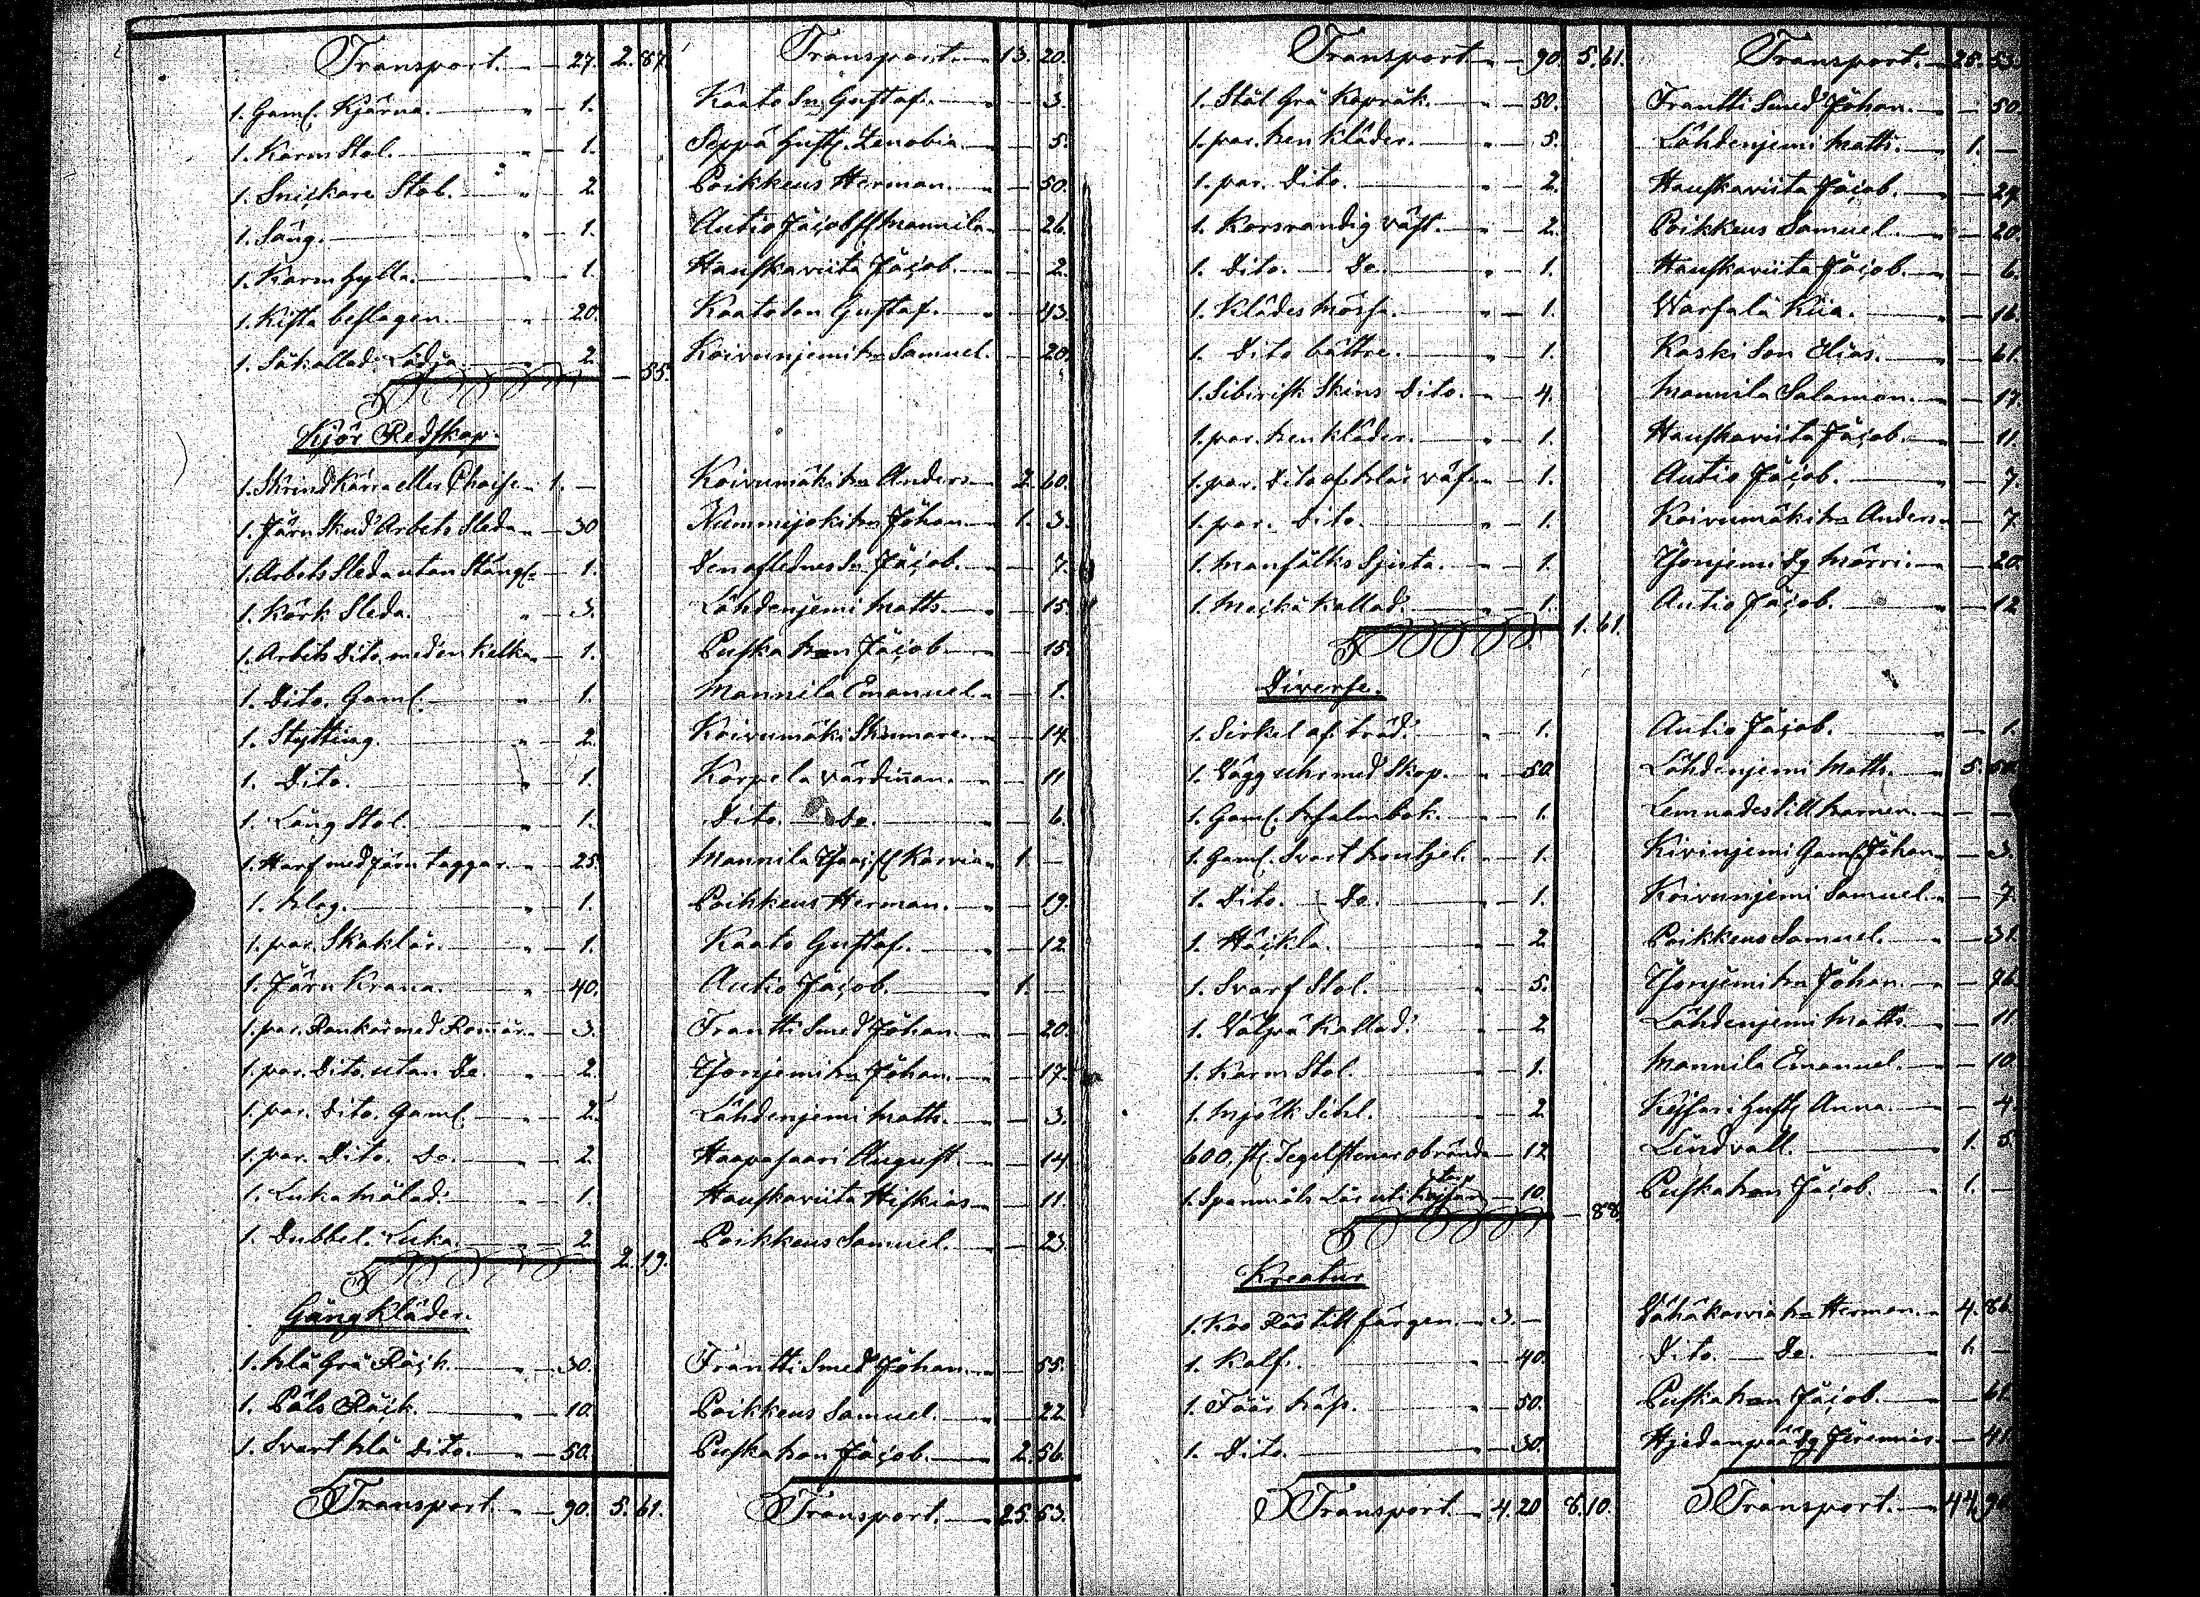 Transport. 27. 2.87. Transport. 13. 20.
1. Gaml. Kjärna. 1. Kaato Sn Gustaf. 3.
1. Karm Stol. 1. Seppä Zenobia. 5.
1. Snickare Stol. 2. Poikkeus Herman. 50.
1. Säng. 1. Autio Jacob Mannila 26.
1. Karm hylla. 1. Hautkaviita Jacob. 2.
1. Kista beslagen. 20. Kaato Son Gustaf. 43.
1. Såkallad Lådja 2. 55. Koivunjemi Samuel. 20.
Kjör Redskap.
1. Skrind Kärra eller Chaise 1. — Koivumäki Anders 2. 60.
1. Järn Skod Arbets Sleda 30 Johan 1. 3.
1. Arbets Sleda utan Stång 1. Jacob. 7.
1. Körk Sleda. 3. Lähdenjemi Matts. 15.
1. Arbets Dito med en Kelka 1. Puska Jacob 15.
1. Dito. Gaml. 1. Mannila Emanuel 1.
1. Stytting. 2. Koivumäki 14.
1. Dito. 1. Korpela värdinnan. 11
1. Lång Stol. 1. Dito. Do. 6.
1. Harf med Järn taggar. 25. Mannila Karvia 1. —
1. Plog. 1. Poikkeus Herman. 19.
1. par. Skaklar. 1. Kaato Gustaf. 12.
1. Järn Krana. 40. Autio Jacob. 1. —
1. par. Rankor med 3. Frantti Smed Johan 20.
1. par. Dito utan Do. 2. Johan. 17.
1. par. Dito. Gaml. 2. Lähdenjemi Matts. 3.
1. par. Dito. Do. 2. Haapasaari August. 14
1. Luka målad. 1. Hautkaviita Hiskias 11.
1. Dubbel. Luka. 2. 2.19. Poikkeus Samuel. 23.
Gång Kläder.
1. blå Grå Råck. 30. Frantti Smed Johan. 55.
1. Päls Råck. 10. Poikkeus Samuel. 22.
1. Svart blå Dito. 50. Puska Jacob. 2. 56.
Transport. 90. 5. 61. Transport. 25. 53.
Transport 90. 5. 61. Transport. 25. 53.
1. Stål Grå Kapråk. 50. Frantti Smed Johan. 50.
1. par. ben kläder. 5. Lähdenjemi Matts. 1. —
1. par. Dito. 2. Hautkaviita Jacob. 24
1. Korsrandig väst. 2. Poikkeus Samuel. 20.
1. Dito. Do. 1. Hautkaviita Jacob. 6.
1. Klädes Mössa. 1. Warsala 16.
1. Dito bättre. 1. Koski Son Elias. 61.
1. Sibirisk Skins Dito. 4. Mannila Salamon. 17.
1. par. ben kläder. 1. Hautkaviita Jacob. 11.
1. par. Dito af blå väf. 1. Autio Jacob. 7.
1. par. Dito. 1. Koivumäki Anders 7.
1. Manfålks Sjorta. 1. 20.
1. kallad. 1. 1. 61. Autio Jacob. 12
Diverse.
1. Sirkel af träd. 1. Autio Jacob. 1.
1. Vägg uhr med Skap. 50. Lähdenjemi Matts. 5. 50.
1. Gaml. Psalmbok. 1. Lemnades till barnen. — —
1. Gaml. Svart 1. Kivinjemi Gaml. Johan 3.
1. Dito. Do. 1. Koivunjemi Samuel. 7.
1. Häckla. 2. Poikkeus Samuel. 31.
1. Svarf Stol. 5. Johan. 96.
1. Kallad. 2 Lähdenjemi Matts. 11
1. Karm Stol. 1. Mannila Emanuel. 10.
1. Mjölk Sihl. 2. Anna. 4.
600. st. Tegelstenar obrända 12. Lindvall. 1. 5.
1. Spanmåls Lår uti 10. 88. Puska Jacob. 1. —
Kreatur
1. Koo Röö till färgen. 3. — Vähäkarvia Herman. 4. 86.
1. Kalf. 40. Dito. Do. 1. —
1. Fåår 50. Puska Jacob. 61.
1. Dito. 30. Jeremias. 41.
Transport. 4. 20 8. 10. Transport. 44.